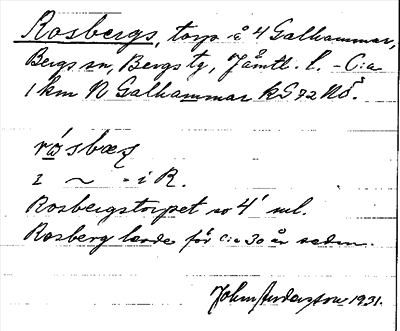 Rosbergs, torp å 4 Galhammar,
Bergs sn, Bergs tg, Jämtl. l. - C:a
1 km N Galhammar kS 72 NÖ.
råsbæʃ
i ~ - i R.
Rosbergstorpet 4 ml.
Rosberg levde för c:a 30 år sedan.
John Andersson 1931.